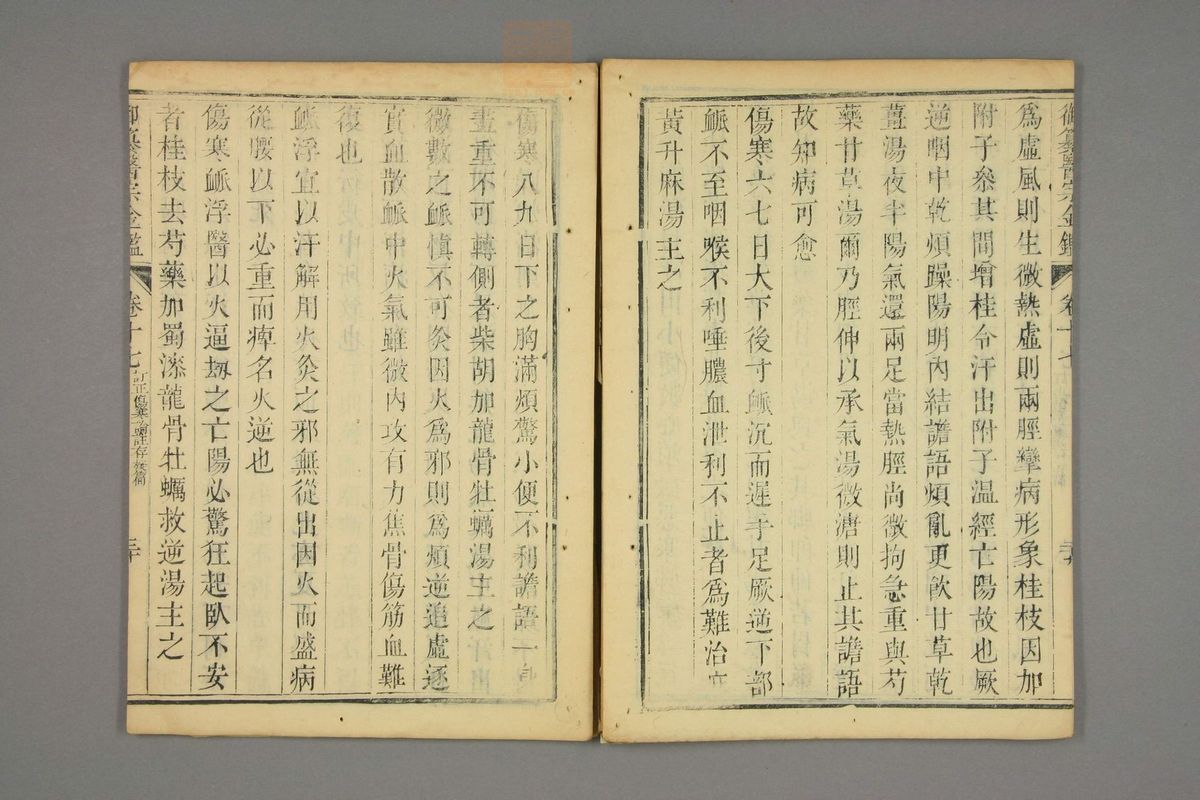 御纂醫宗金鑑 卷十七
爲虛風則生微熱虛則兩脛攣病形象桂枝因加
附子叅其間增桂令汗出附子温經亡陽故也厥
逆咽中乾煩躁陽明內結譫語煩亂更飲甘草乾
薑湯夜半陽氣還兩足當熱脛尚微拘急重與芍
藥甘草湯爾乃脛伸以承氣湯微溏則止其譫語
故知病可愈
傷寒六七日大下後寸脈沉而遲手足厥逆下部
脈不至咽喉不利唾膿血泄利不止者爲難治
黃升麻湯主之
傷寒八九日下之胸滿煩驚小便不利譫語一
盡重不可轉側者柴胡加龍骨牡蠣湯主之
微數之脈愼不可灸因火爲邪則爲煩逆追虛逐
實血散脈中火氣雖微內攻有力焦骨傷筋血難
復也
脈浮宜以汗解用火灸之邪無從出因火而盛病
從腰以下必重而痺名火逆也
傷寒脈浮醫以火逼刼之亡陽必驚狂起臥不安
者桂枝去芍藥加蜀漆龍骨牡蠣救逆湯主之
御纂醫宗金鑑 卷十七 訂正傷寒論註存 三十